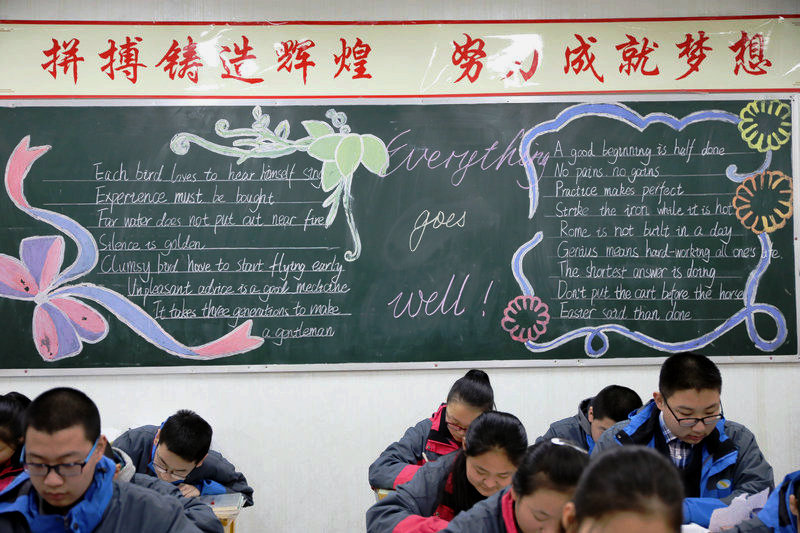 拼搏铸造辉煌 努力成就梦想
Each bird loves to hear himself sing
Experience must be bought
Far water does not put out near fire
Silence is golden
Clumsy bird have to start flying early
Unpleasant advice is a good medicine
It takes three generations to make
a gentleman
Everything
goes
well!
A good beginning is half done
No pains no gains
Practice makes perfect
Strike the iron while it is hot
Rome is not built in a day
Genius means hard-working all one's life.
The shortest answer is doing
Don't put the cart before the horse
Easier said than done